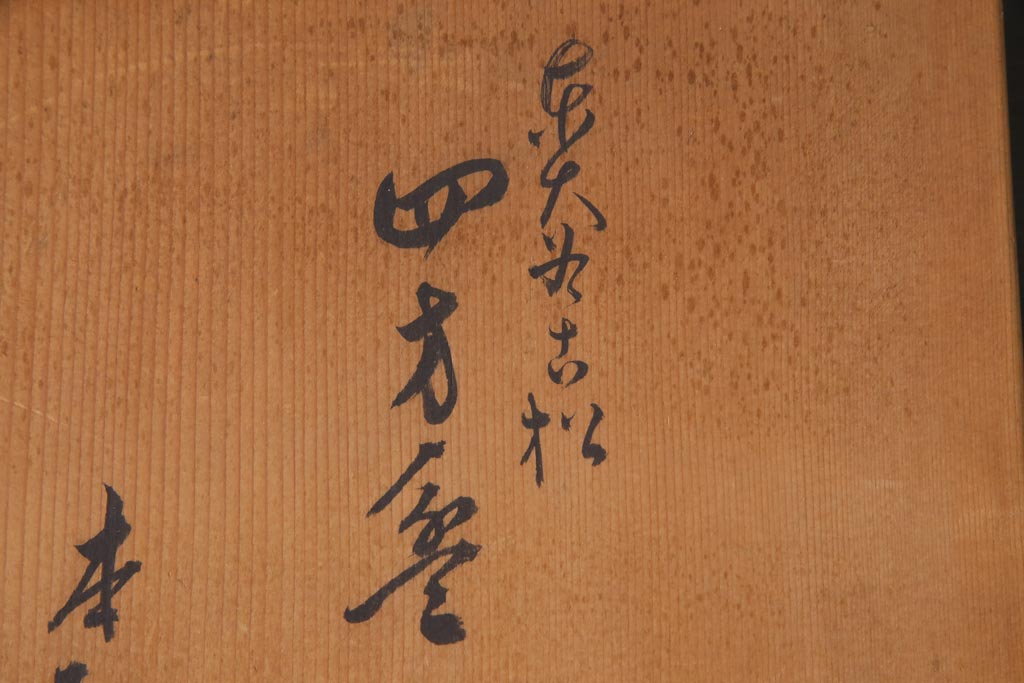 東大谷古松
四方盆
本